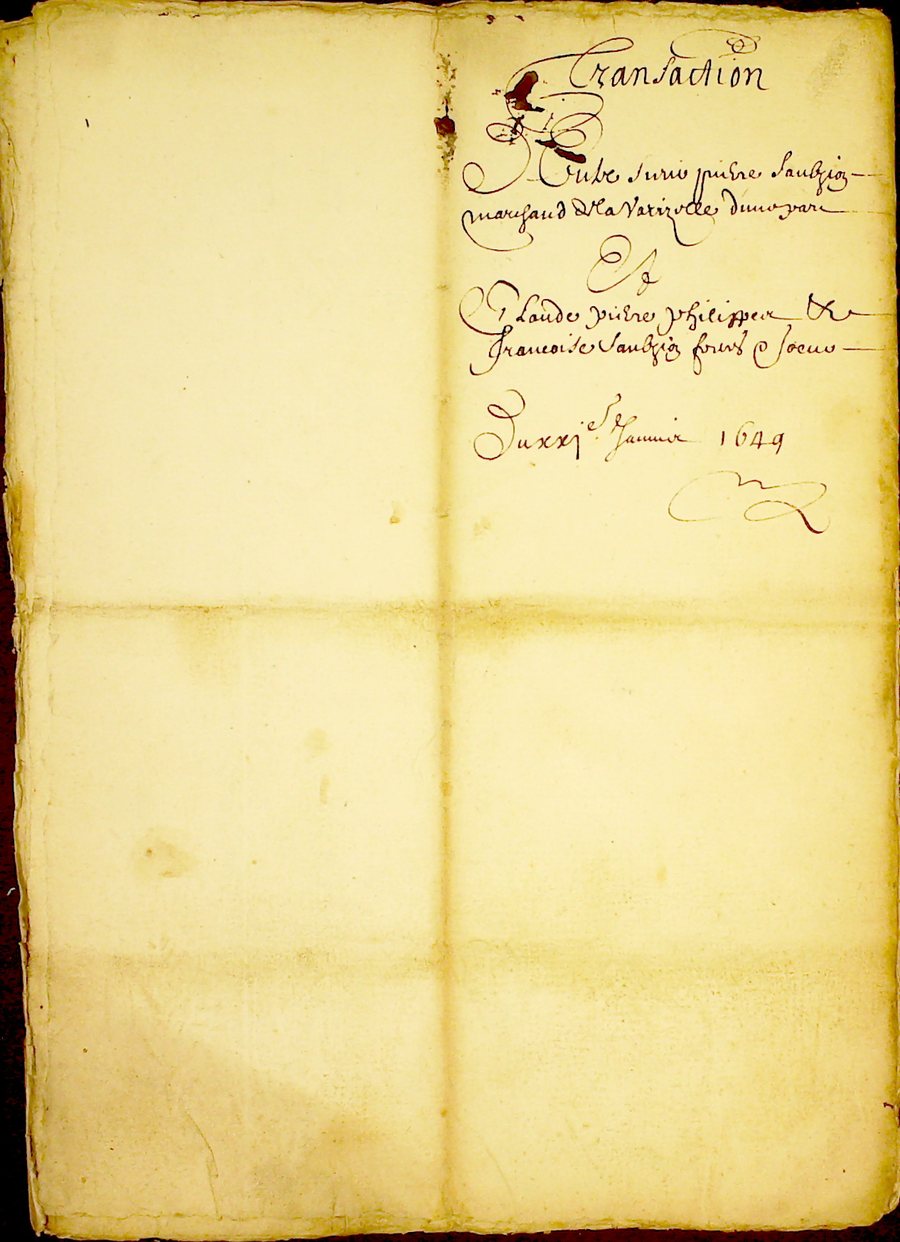 Transaction
Entre sieur pierre Saulzion
marchand de la Varizelle d'une part
Et
Claude pierre philippes &
francoise Saulzion freres & soeur
Du xxj.e Januier 1649